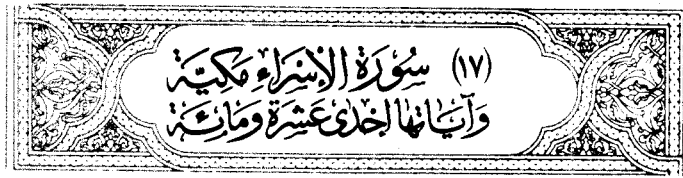 (١٧) سُورَةُ الْإِسْرَاءِ مَكِّيَّة
وَآيَاتُهَا إِحْدَى عَشْرَةَ وَمَائَة